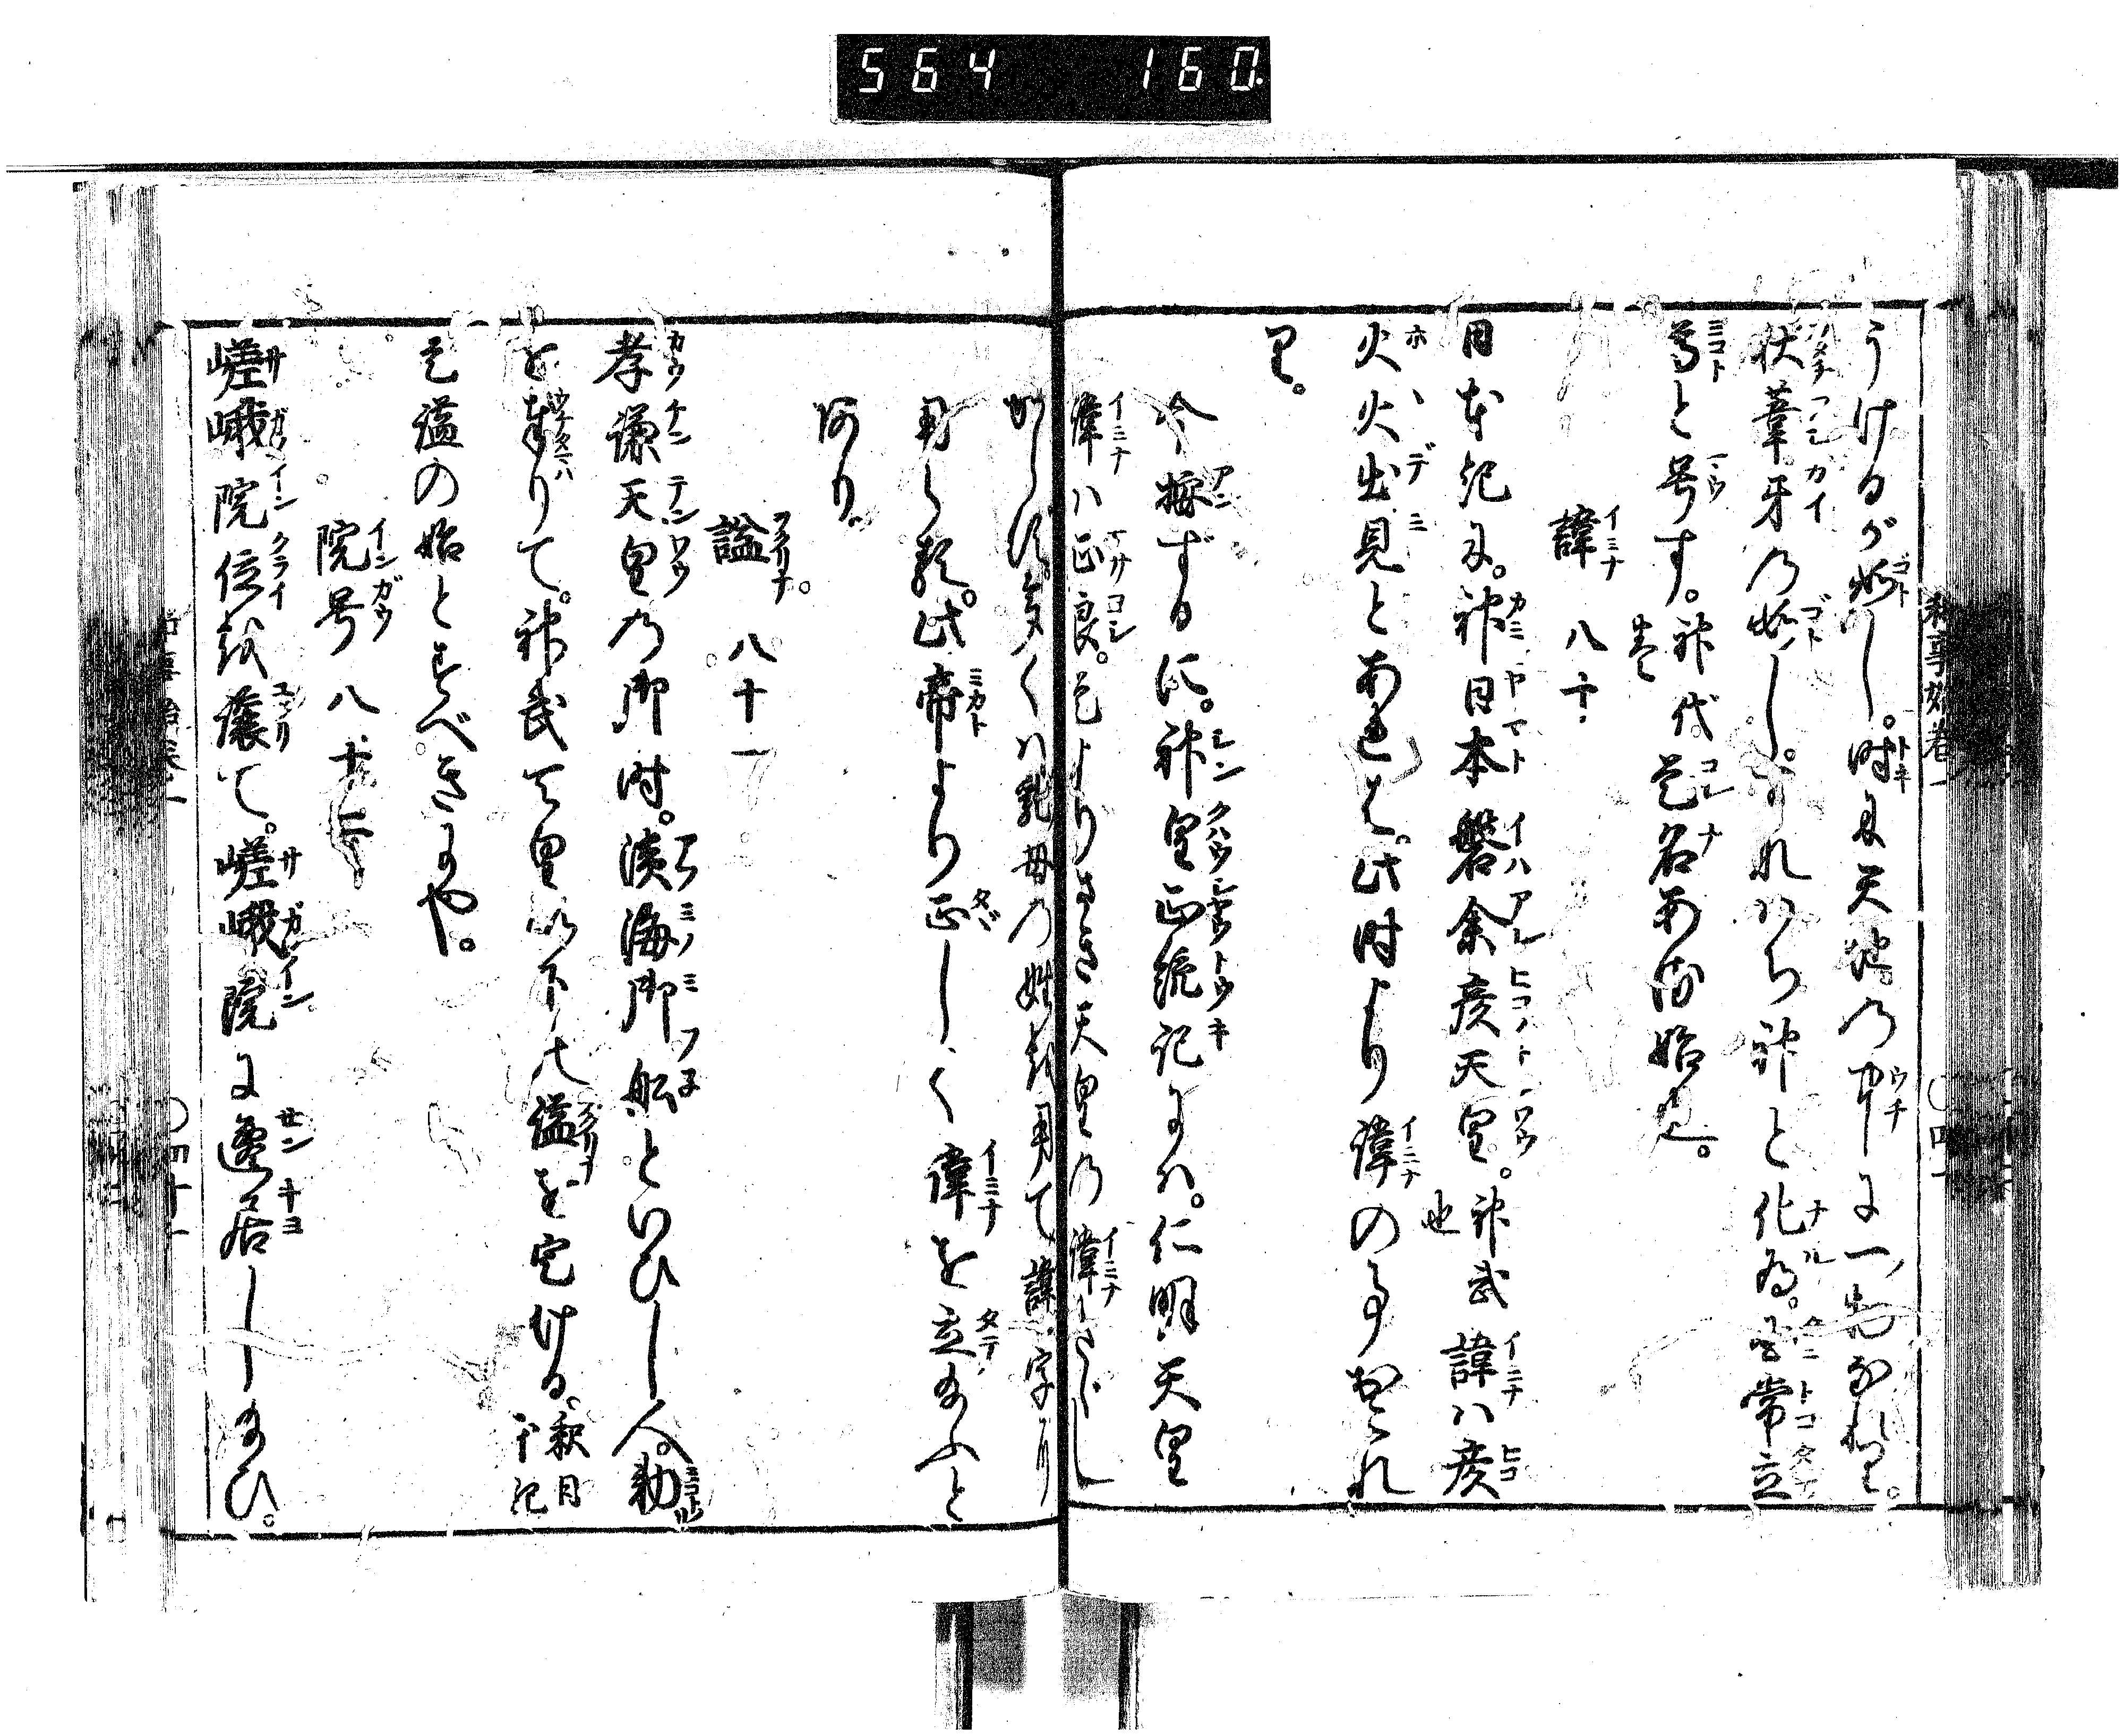 564 160
うけるが如し。時に天地の中に一物なれり。
状葦牙の如し。すなはち神と化為。国常立
尊と号す。神代巻 是名ある始也。
諱 八十
日本紀に。神日本磐余彦天皇。神武也 諱ハ彦
火火出見とあれば。此時より諱の事おこれ
り。
今按ずるに。神皇正統記にハ。仁明天皇
諱ハ正良。是よりさき天皇の諱
多くハ乳母の姓を用て諱
用らる。此帝より正しく諱を立給ふと
あり。
諡 八十一
孝謙天皇の御時。淡海御船といひし人。勅
を奉りて。神武天皇以下の諡を定ける。釈日本紀
是諡の始とすべきにや。
院号 八十二
嵯峨院位を譲て。嵯峨院に遷居しましまし給ひ。